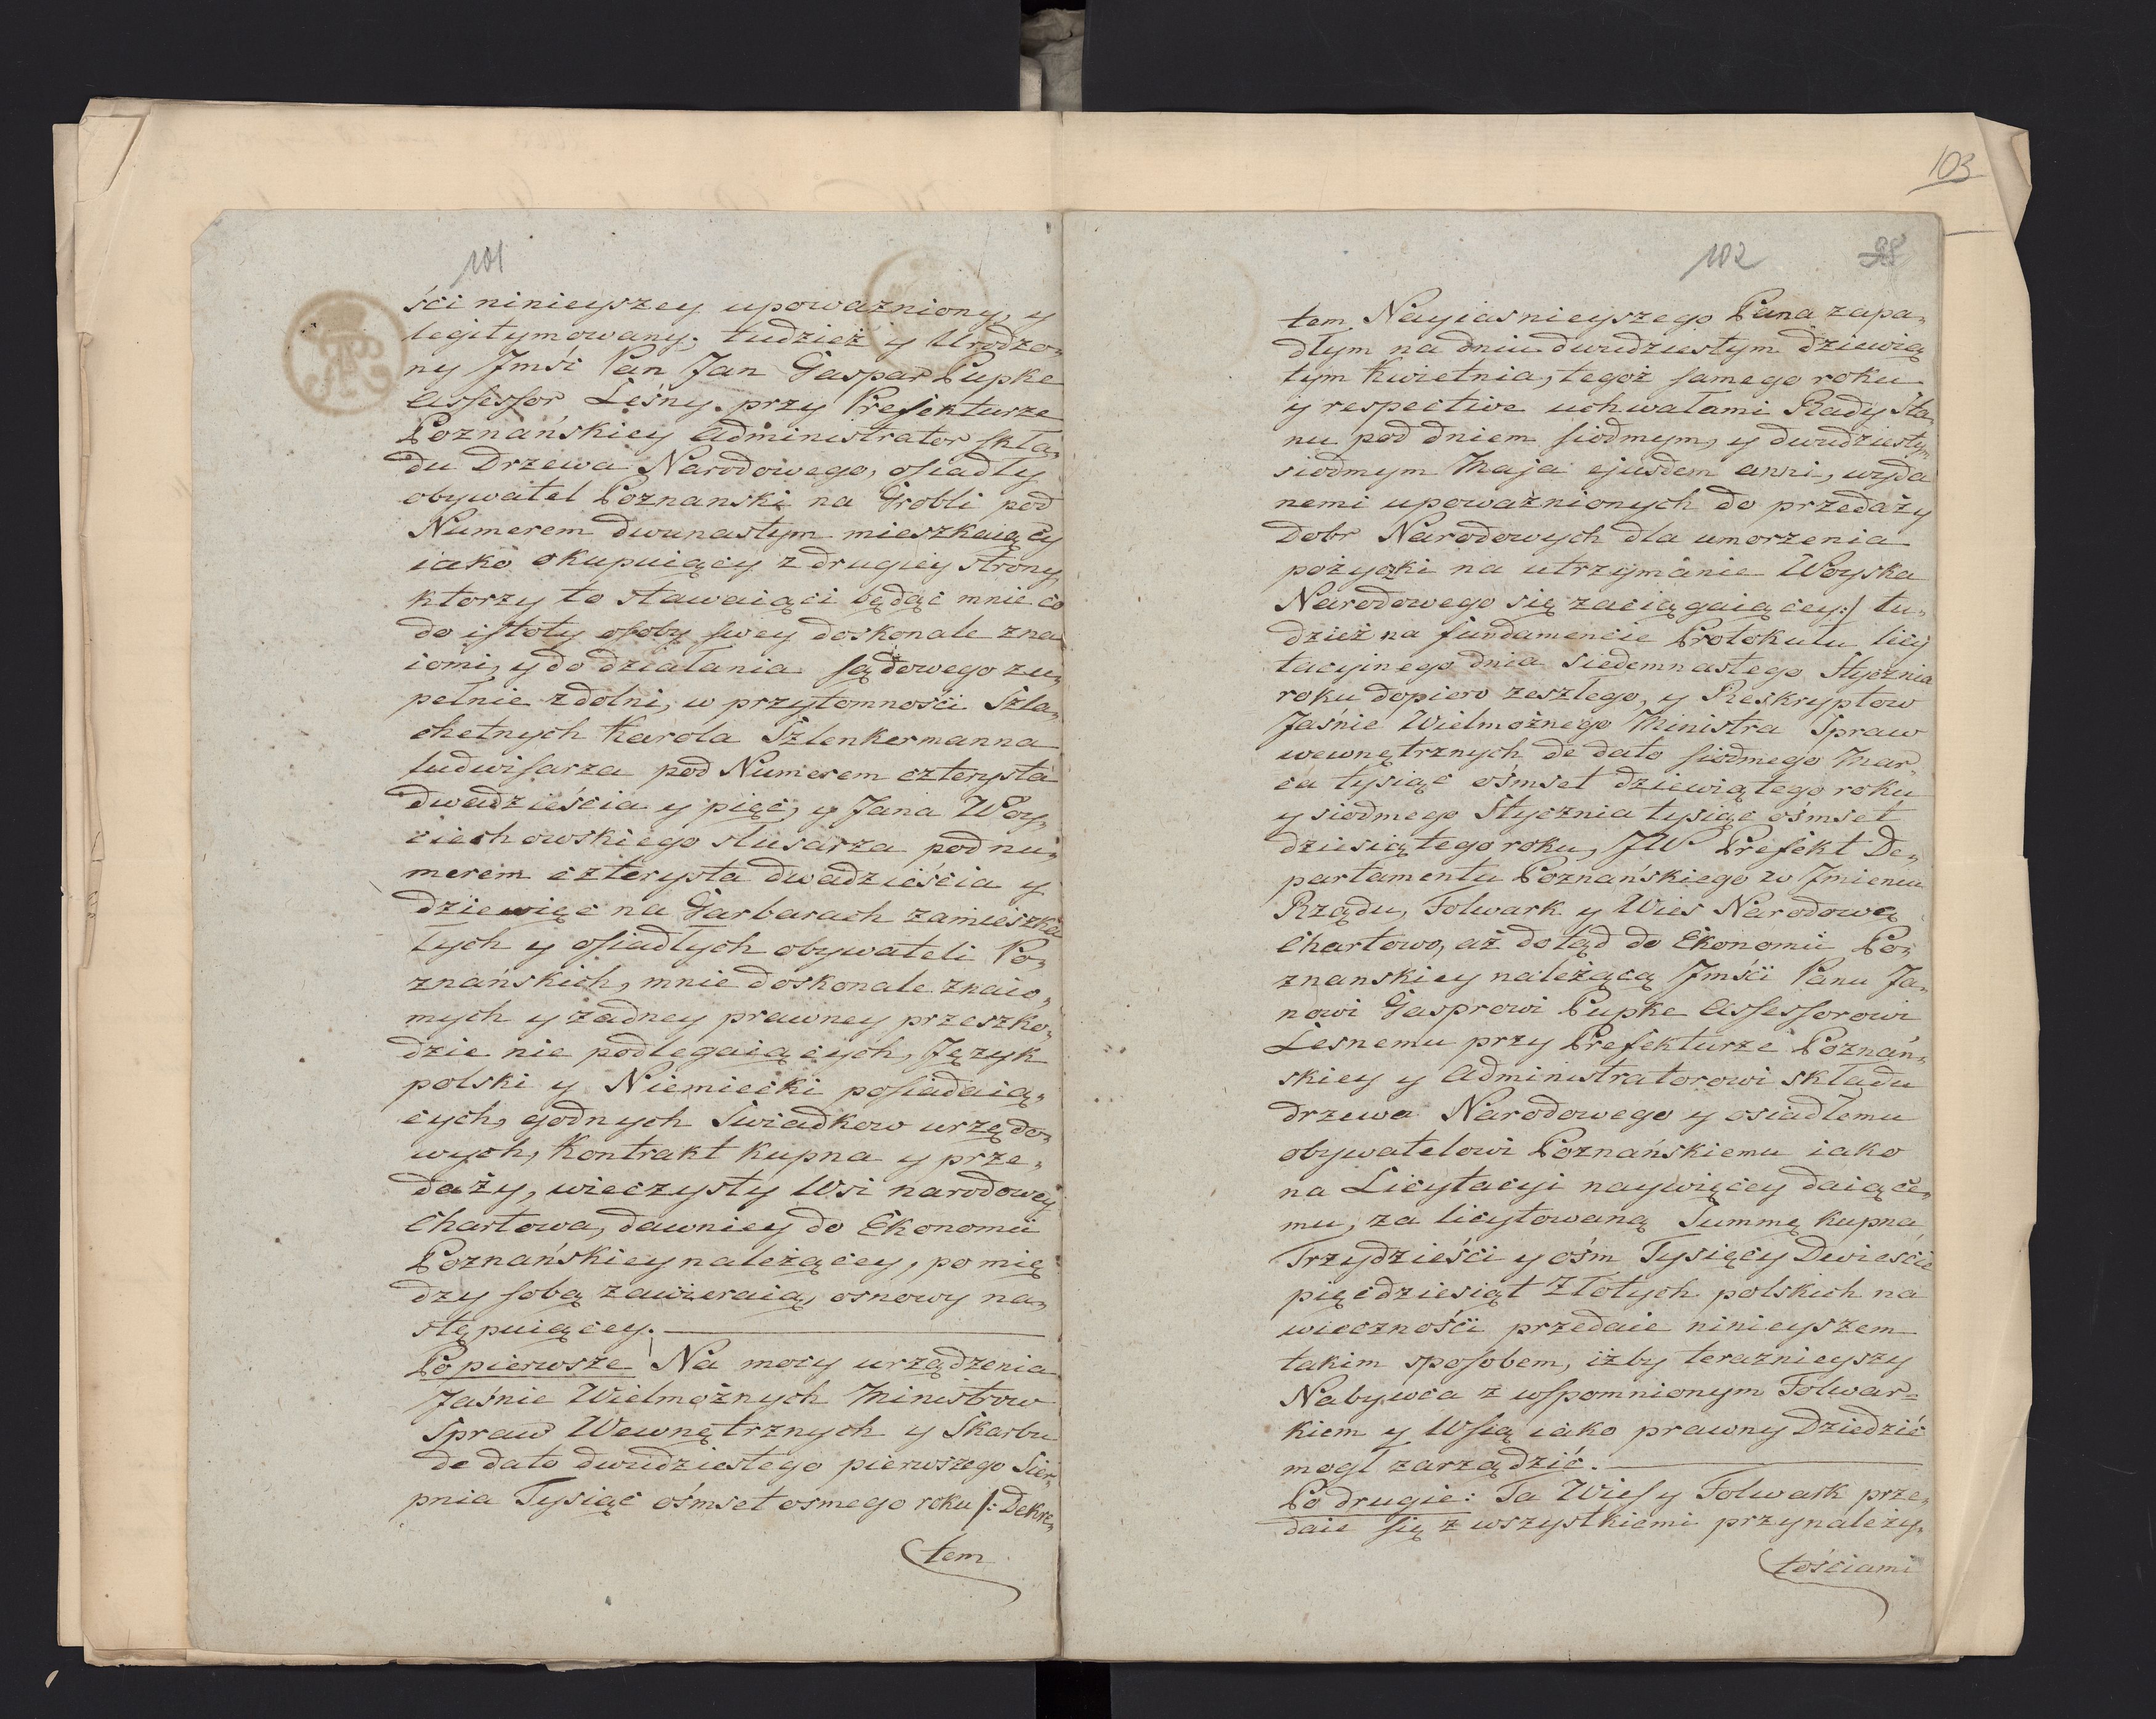 103
101
ści ninieyszey upoważniony, y
legitymowany, tudzież y Urodzo„
ny Jmśi Pan Jan Gaspar Pupke
Assessor Leśny przy Prefekturze
Poznańskiey Administrator skła„
du Drzewa Narodowego, osiadły
obywatel Poznanski na Grobli pod
Numerem dwunastym mieszkaiący
iako okupuiący z drugiey strony,
ktorzy to stawaiąci będąc mnie co
do istoty osoby swey doskonale zna
iomi, y do działania sądowego zu„
pełnie zdolni, w przytomności Szla„
chetnych Karola Szlenkermanna
ludwisarza pod Numerem czterysta
dwadzieścia y pięć, y Jana Woy„
ciechowskiego slusarza pod nu„
merem czterysta dwadzieścia y
dziewięc na Garbarach zamieszka
łych y osiadłych obywateli Po„
znańskich, mnie doskonale znaio„
mych y żadney prawney przeszko„
dzie nie podlegaiących, Język
polski y Niemiecki posiadaią„
cych, godnych Swiadkow urzędo„
wych, Kontrakt Kupna y prze„
daży, wieczysty Wsi narodowey
Chartowa, dawniey do Ekonomii
Poznańskiey należącey, pomię
dzy sobą zawieraią, osnowy na„
stępuiącey.
Po pierwsze Na mocy urządzenia
Jaśnie Wielmożnych Ministrow
Spraw Wewnętrznych y Skarbu
de dato dwudziestego pierwszego Sier„
pnia Tysiąc ośmset osmego roku /: Dekre„
tem
102
98
tem Nayiasnieyszego Pana zapa„
dłym na dniu dwudziestym dziewią
tym Kwietnia, tegoż samego roku
y respective uchwałami Rady Sta„
nu pod dniem siodmym, y dwudziestym
siodmym Maja ejusdem anni, wyda
nemi upoważnionych do przedaży
Dobr Narodowych dla umorzenia
pożyczki na utrzymanie Woyska
Narodowego się zaciągaiącey:/ tu„
dzież na fundamencie Protokułu licy
tacyinego dnia siedemnastego Stycznia
roku dopiero zeszłego, y Reskryptow
Jaśnie Wielmożnego Ministra Spraw
wewnętrznych de dato siodmego Mar„
ca tysiąc ośmset dziewiątego roku
y siodmego Stycznia tysiąc ośmset
dziesiątego roku, JW Prefekt De„
partamentu Poznańskiego w Jmieniu
Rządu, Folwark y Wies Narodową
Chartowo, aż dotąd do Ekonomii Po„
znanskiey należącą Jmści Panu Ja„
nowi Gasprowi Pupke Assessorowi
Lesnemu przy Prefekturze Poznań„
skiey y Administratorowi Składu
drzewa Narodowego y osiadłemu
obywatelowi Poznańskiemu iako
na Licytacyi naywięcey daiące„
mu, za licytowaną Summę kupna
Trzydzieści y ośm Tysięcy Dwieście
pięcdziesiąt Złotych polskich na
wieczności przedaie ninieyszem
takim sposobem, iżby teraznieyszy
Nabywca z wspomnionym Folwar=
kiem y Wsią iako prawny Dziedzić
mogl zarządzić.
Po drugie: Ta Wies y Folwark prze„
daie się z wszystkiemi przynależy„
tościami